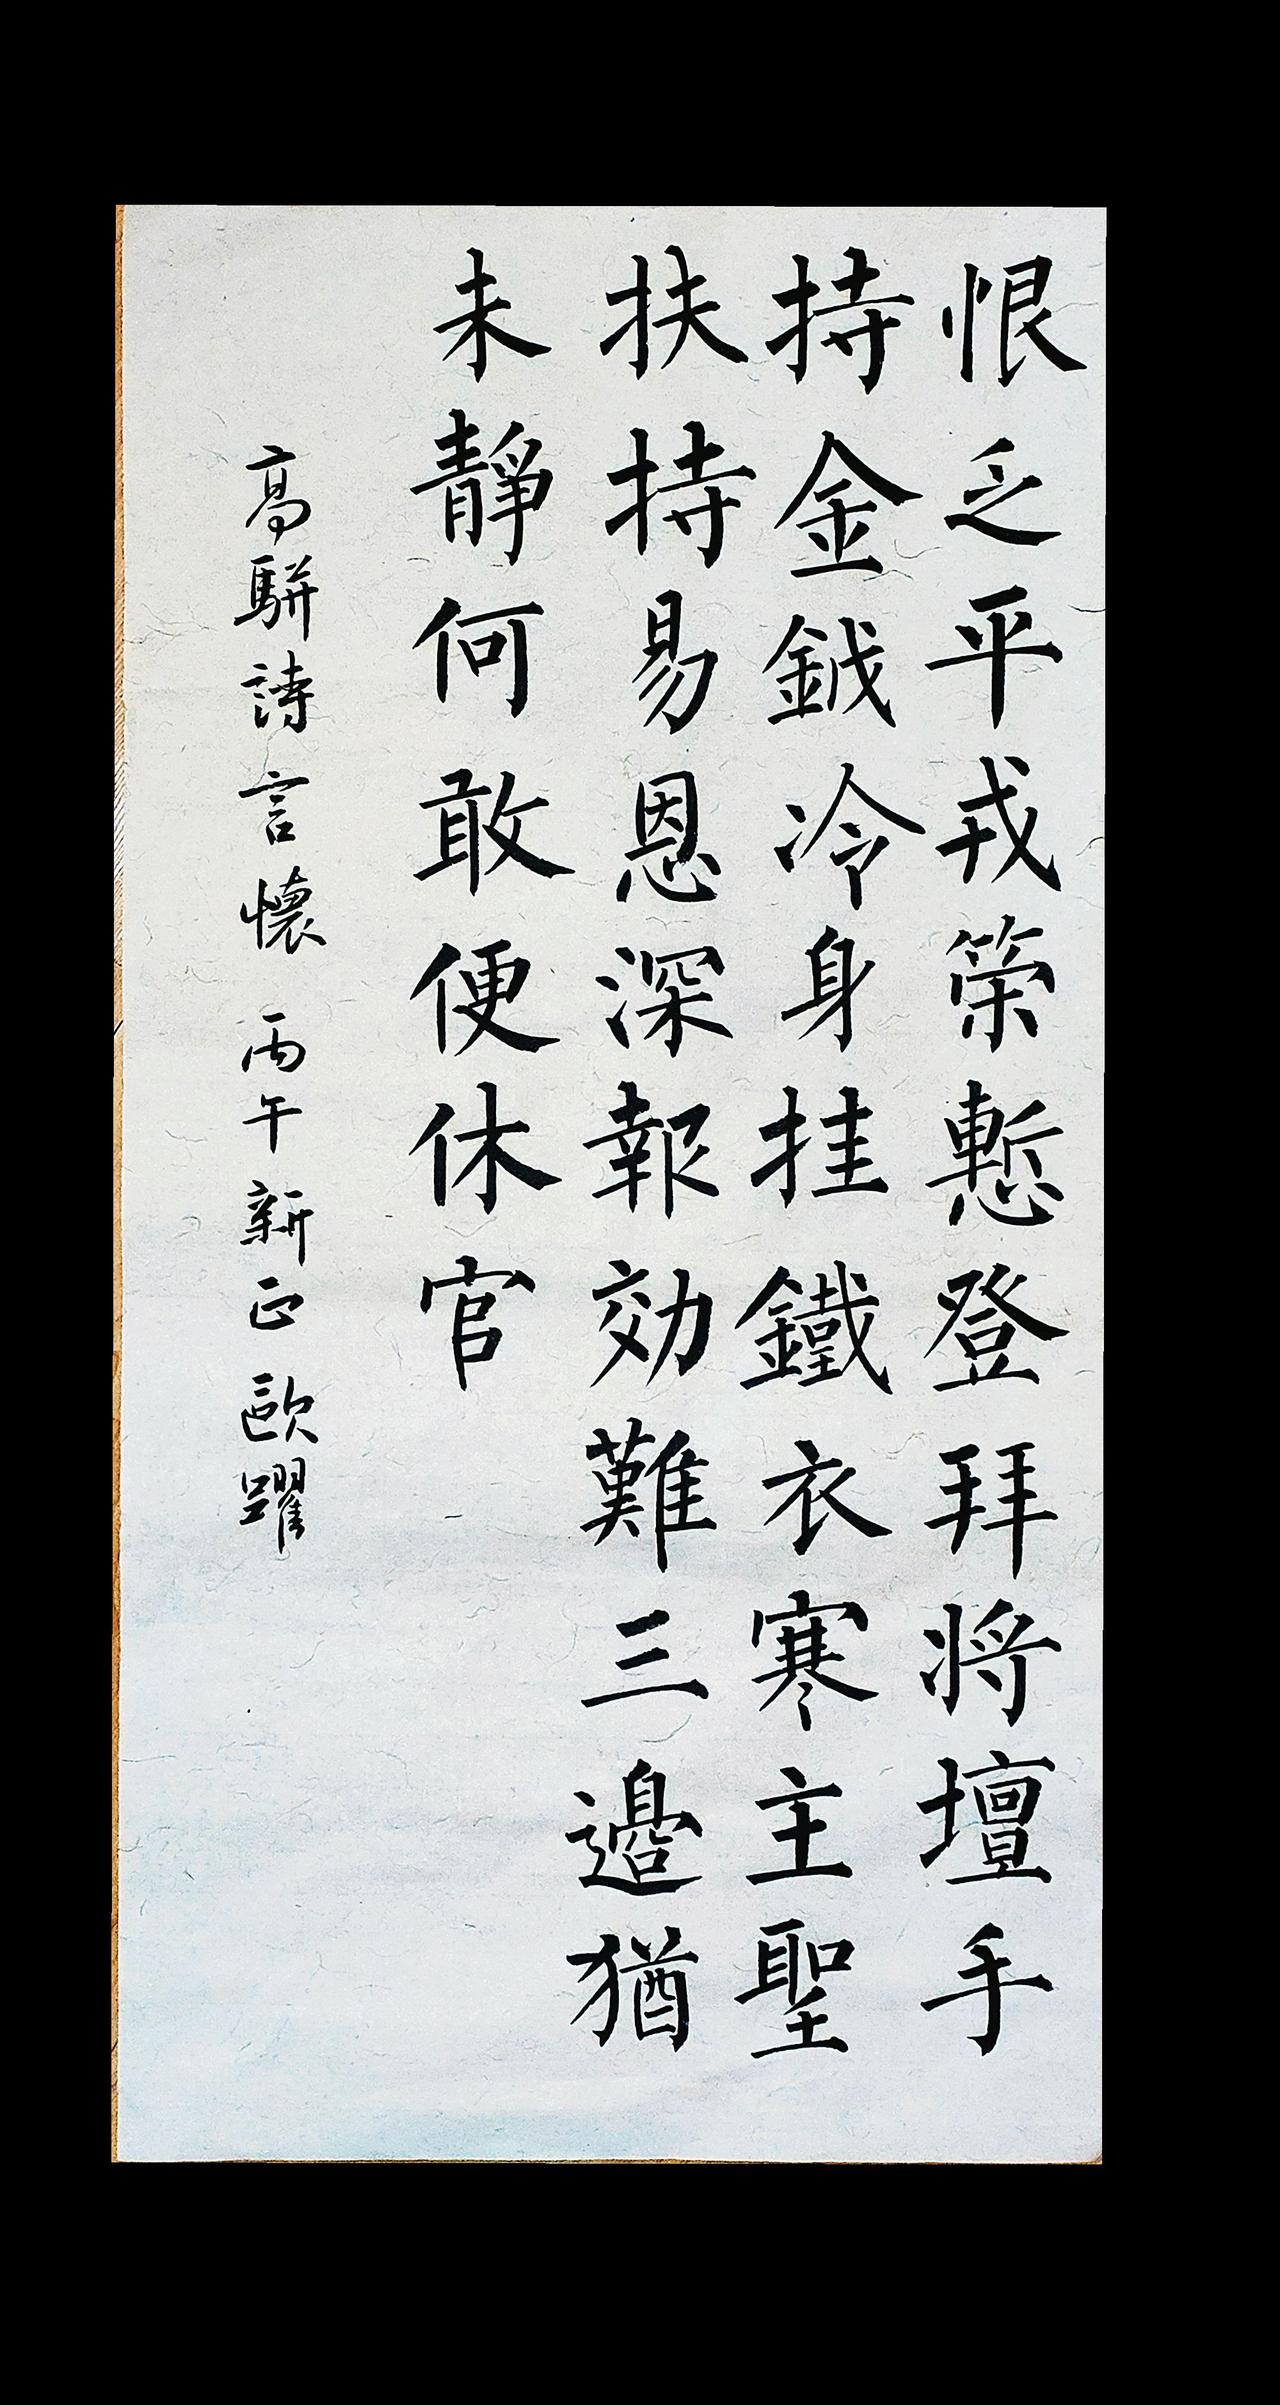 恨乏平戎策慙登拜將壇手
持金鉞冷身挂鐵衣寒主聖
扶持易恩深報効難三邊猶
未靜何敢便休官
高駢詩言懷 丙午新正歐躍